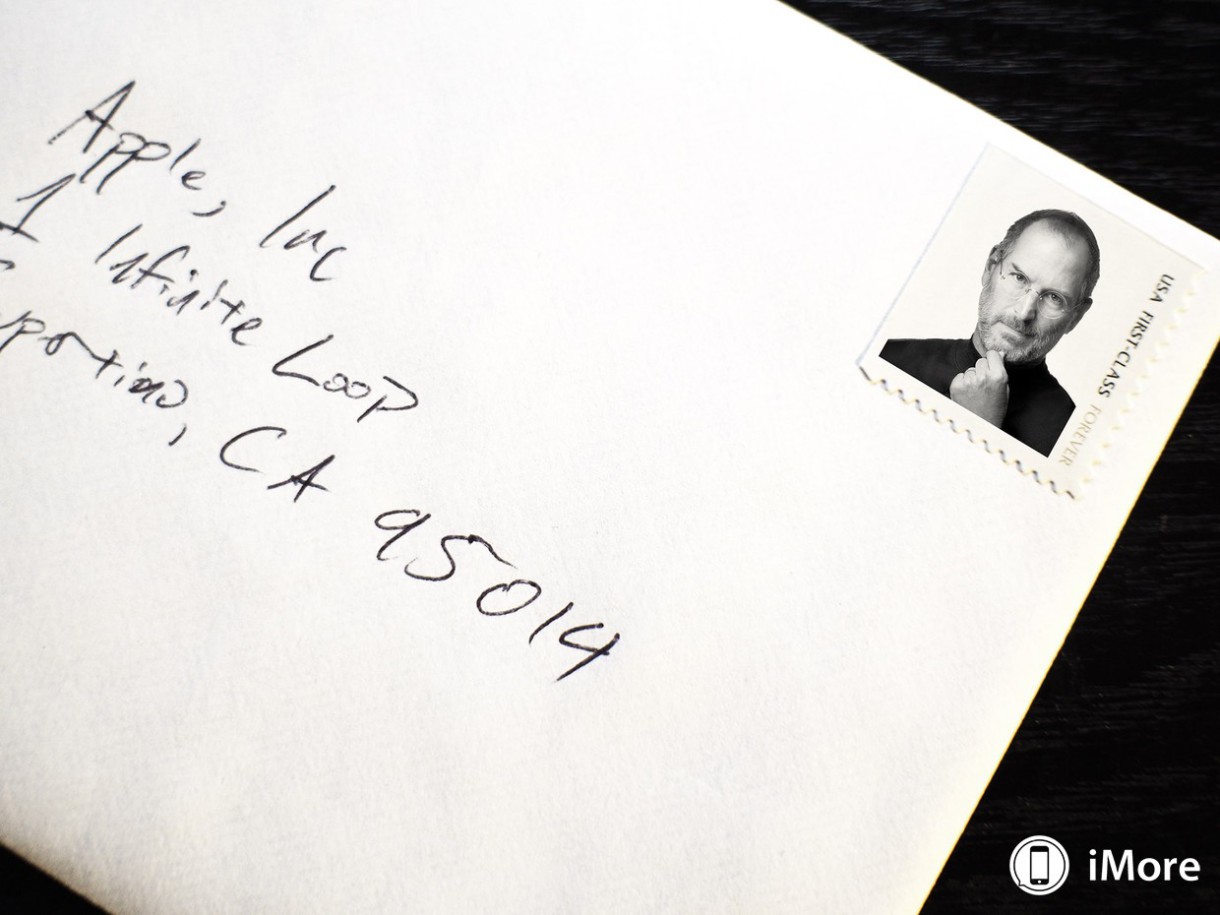 Apple, Inc
1 Infinite Loop
Cupertino, CA 95014
USA FIRST-CLASS FOREVER
iMore